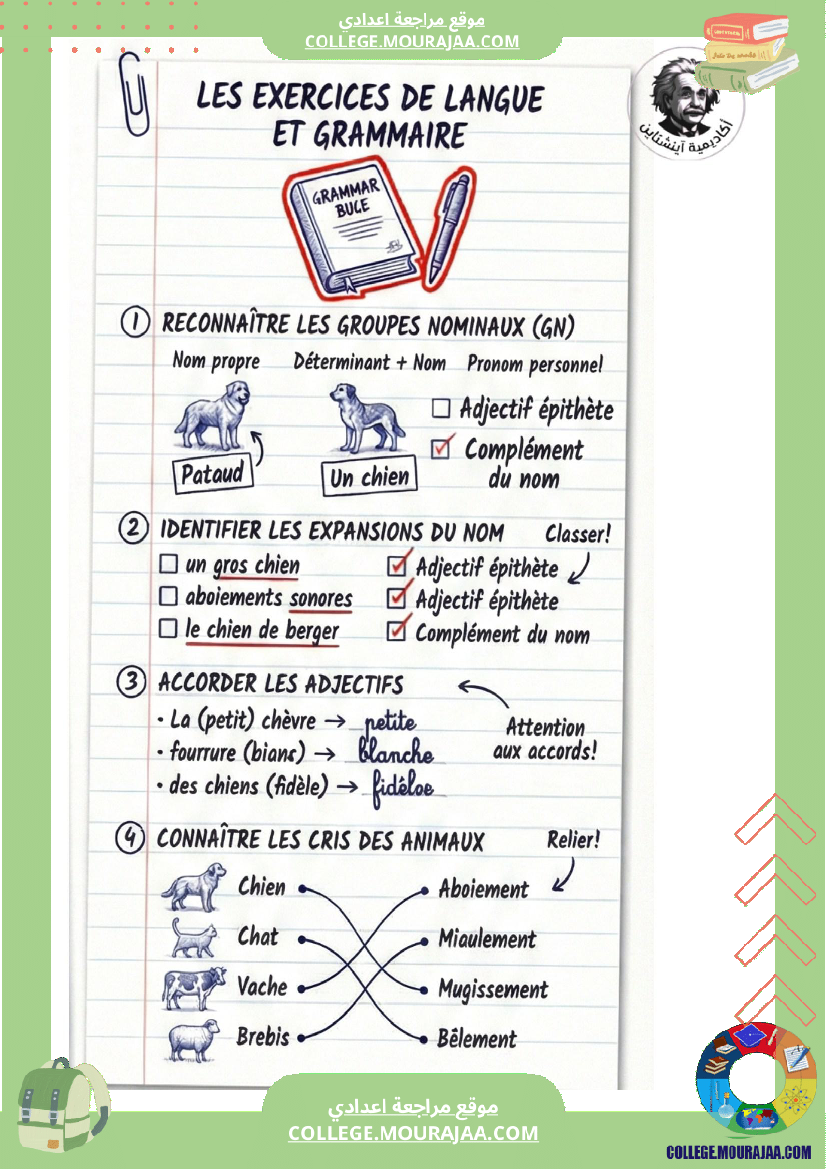 موقع مراجعة اعدادي
COLLEGE.MOURAJAA.COM
أكاديمية آينشتاين
LES EXERCICES DE LANGUE
ET GRAMMAIRE
GRAMMAR
BUCE
1 RECONNAÎTRE LES GROUPES NOMINAUX (GN)
Nom propre Déterminant + Nom Pronom personnel
Adjectif épithète
Complément
du nom
Pataud Un chien
2 IDENTIFIER LES EXPANSIONS DU NOM Classer!
un gros chien Adjectif épithète
aboiements sonores Adjectif épithète
le chien de berger Complément du nom
3 ACCORDER LES ADJECTIFS
• La (petit) chèvre → petite
Attention
aux accords!
• fourrure (bianc) → blanche
• des chiens (fidèle) → fidéloe
4 CONNAÎTRE LES CRIS DES ANIMAUX Relier!
Chien Aboiement
Chat Miaulement
Vache Mugissement
Brebis Bêlement
موقع مراجعة اعدادي
COLLEGE.MOURAJAA.COM
COLLEGE.MOURAJAA.COM